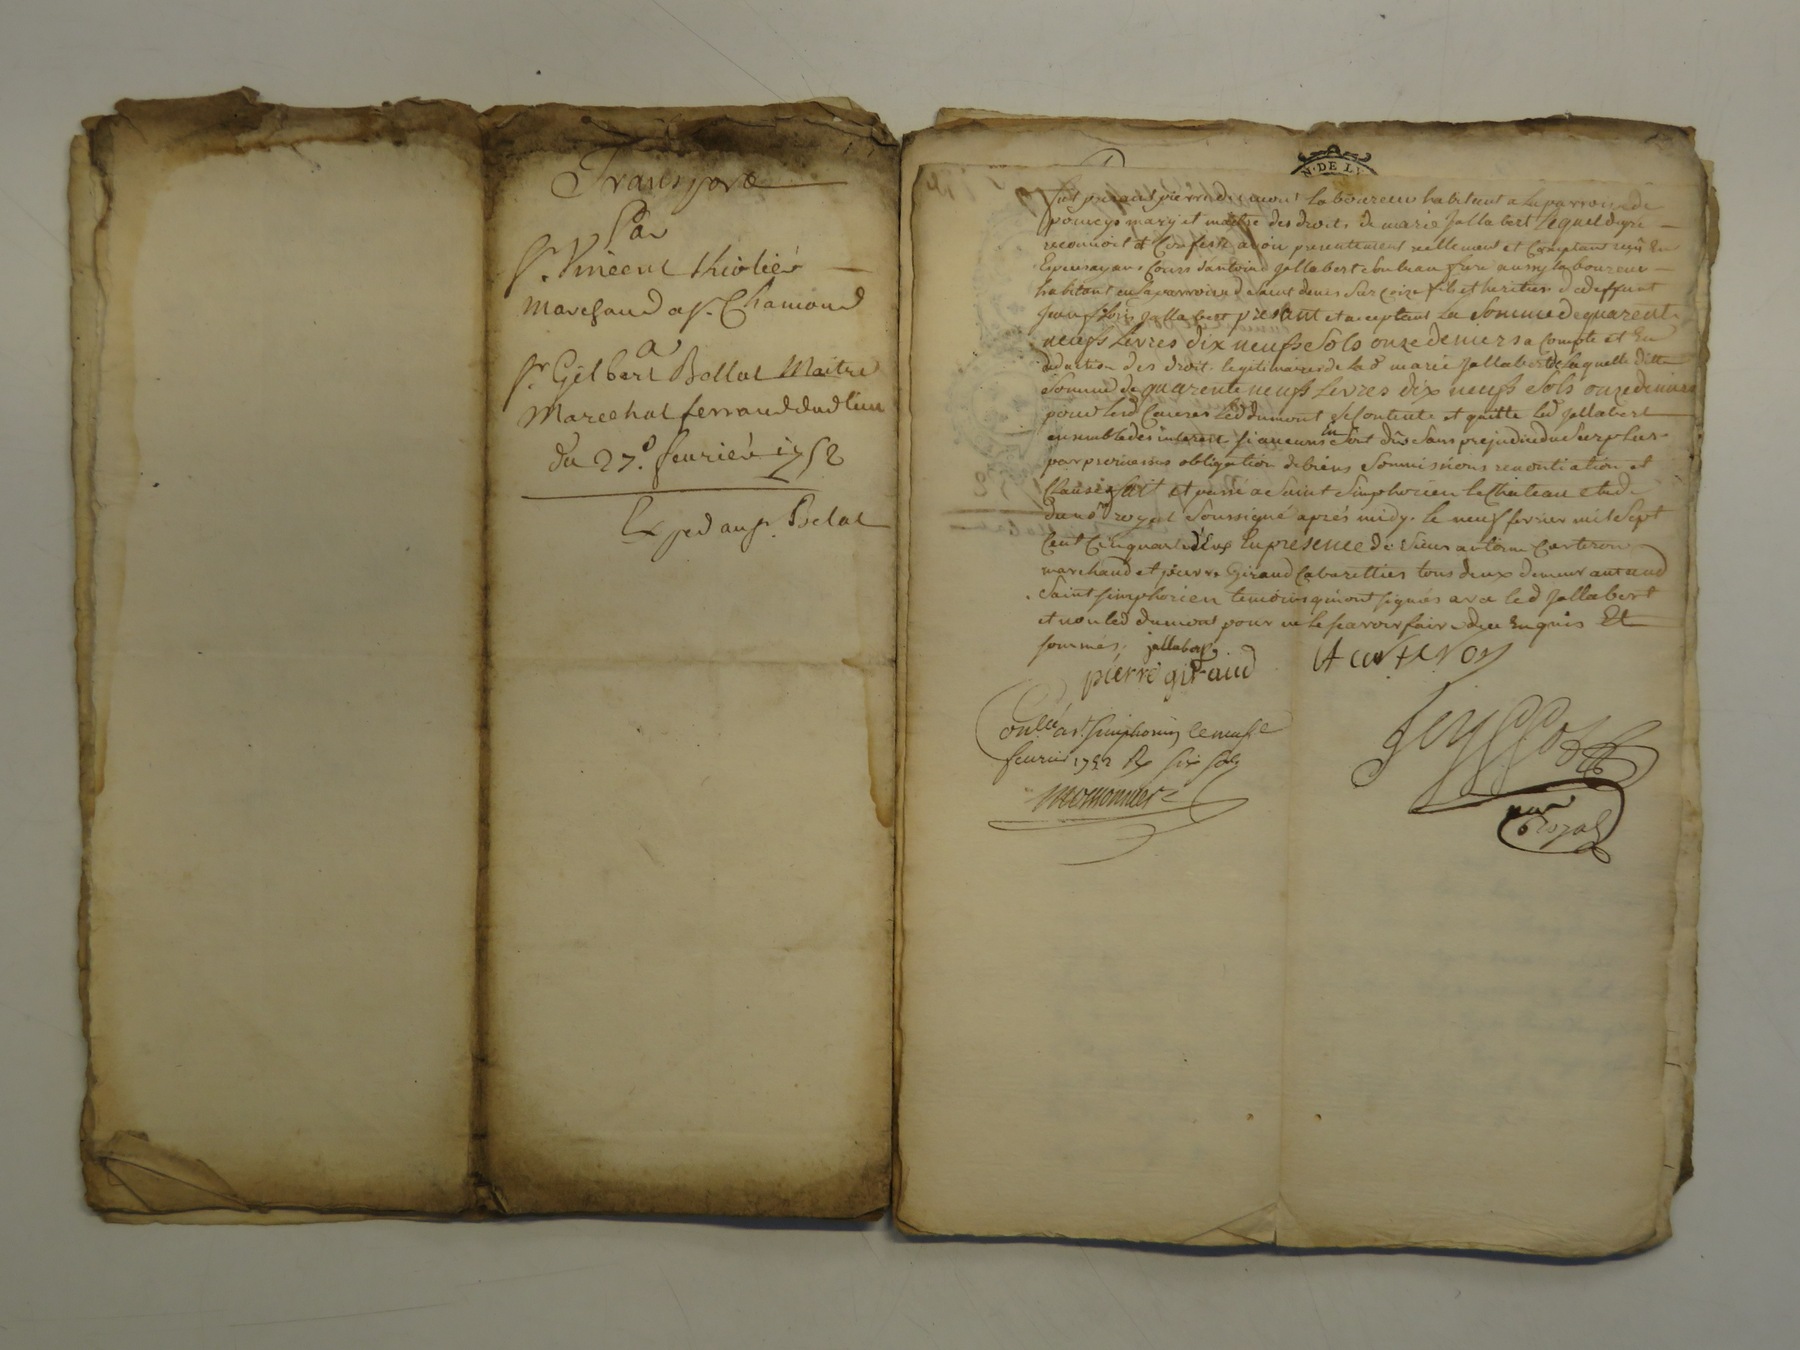 Transport
Par
Sr. Vincent thiolier
Marchand a St. Chamond
a
Sr Gilbert Bellat Maitre
Marechal ferrand dud lieu
du 27e. feurier 1752
Exped au Sr. Belat
N. DE LY
fut present pierre dumont laboureur habitant a la parroisse de
pomeys mary et maitre des droits de marie Jallabert lequel de gre
reconnoit et Confesse avoir presentement reellement et Comptant reçu En
Especes ayans Cours dantoine Jallabert son beau frere aussy laboureur
habitant en la parroisse de Saint denis sur coize fils et heritier de deffunt
Jallabert present et acceptant la Somme de quarente
neufs Livres dix neufs Sols onze deniers a Compte et En
deduction des droits legitimaires de lad marie Jallabert de laquelle ditte
Somme de quarente neufs Livres dix neufs Sols onze deniers
pour led Causes led dumont se Contente et quitte led Jallabert
ensemble des interest si aucuns En Sont dûs Sans prejudice du Surplus
par promesses obligation de biens Soumissions renontiation et
Clauses fait et passé a Saint Simphorien le Chateau etude
du nore royal Soussigné aprés midy. le neuf fevrier mil Sept
Cent Cinquante dEux En présence de Sieurs antoine Carteron
marchand et pierre Giraud Cabarettier tous deux demeurant aud
Saint Simphorien temoins qui ont signés avec led Jallabert
et non led dumont pour ne le scavoir faire de ce Enquis Et
sommés. jallabert
pierre giraud A carteron
Conlle a St. Simphorien le neuf
feurier 1752 Rx six sols
nore
royal